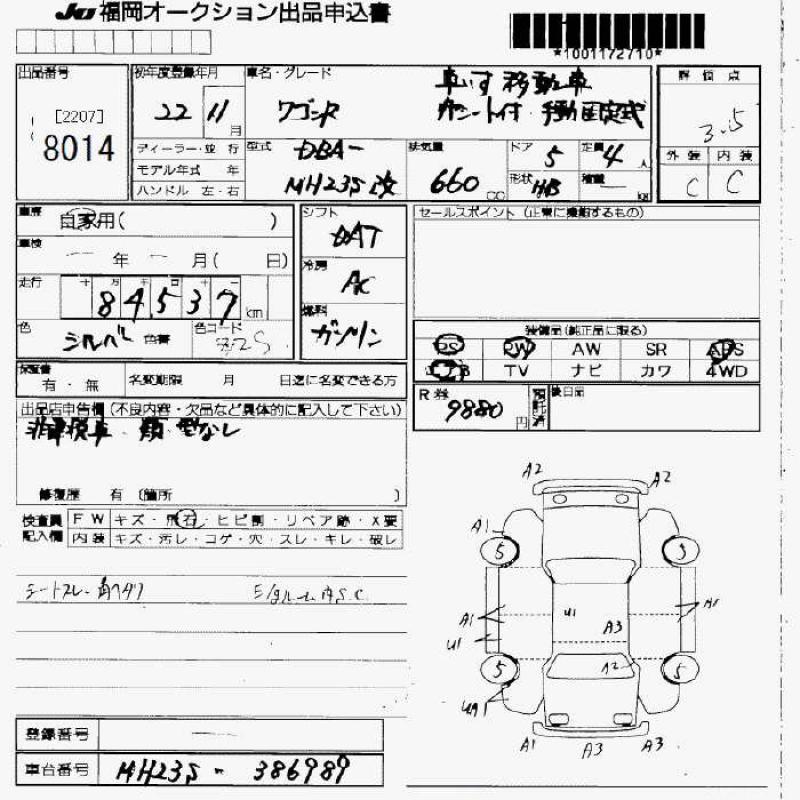 JU福岡オークション出品申込書
*1001172710*
出品番号
[2207]
8014
初年度登録年月
22 11月
ディーラー・並行
モデル年式 年
ハンドル 左・右
車名・グレード
車いす移動車
ワゴンR
型式 DBA-
MH23S改
排気量
660 CC
ドア 5
定員 4人
形状 HB
積載 - kg
評価点
3.5
外装 内装
C C
車歴 自家用( )
車検 ー 年 ー 月( 日)
走行 十万千百十一
84537 km
色 シルバー 色替
色コード
シフト
DAT
冷房
AC
燃料
ガソリン
セールスポイント (正常に機能するもの)
装備品(純正品に限る)
PS PW AW SR ABS
エアB TV ナビ カワ 4WD
保証書
有・無
名変期限 月 日迄に名変できる方
R券 9880円
預託済
後日品
出品店申告欄(不良内容・欠品など具体的に記入して下さい)
非課税車
修復歴 有 〔箇所 〕
検査員記入欄
FW キズ・飛石・ヒビ割・リペア跡・X要
内装 キズ・汚レ・コゲ・穴・スレ・キレ・破レ
A2 A2
A1
5 5
A1 A1
U1 U1 A3
A2
5 5
A1 A3 A3
登録番号 ー
車台番号 MH23S - 386989